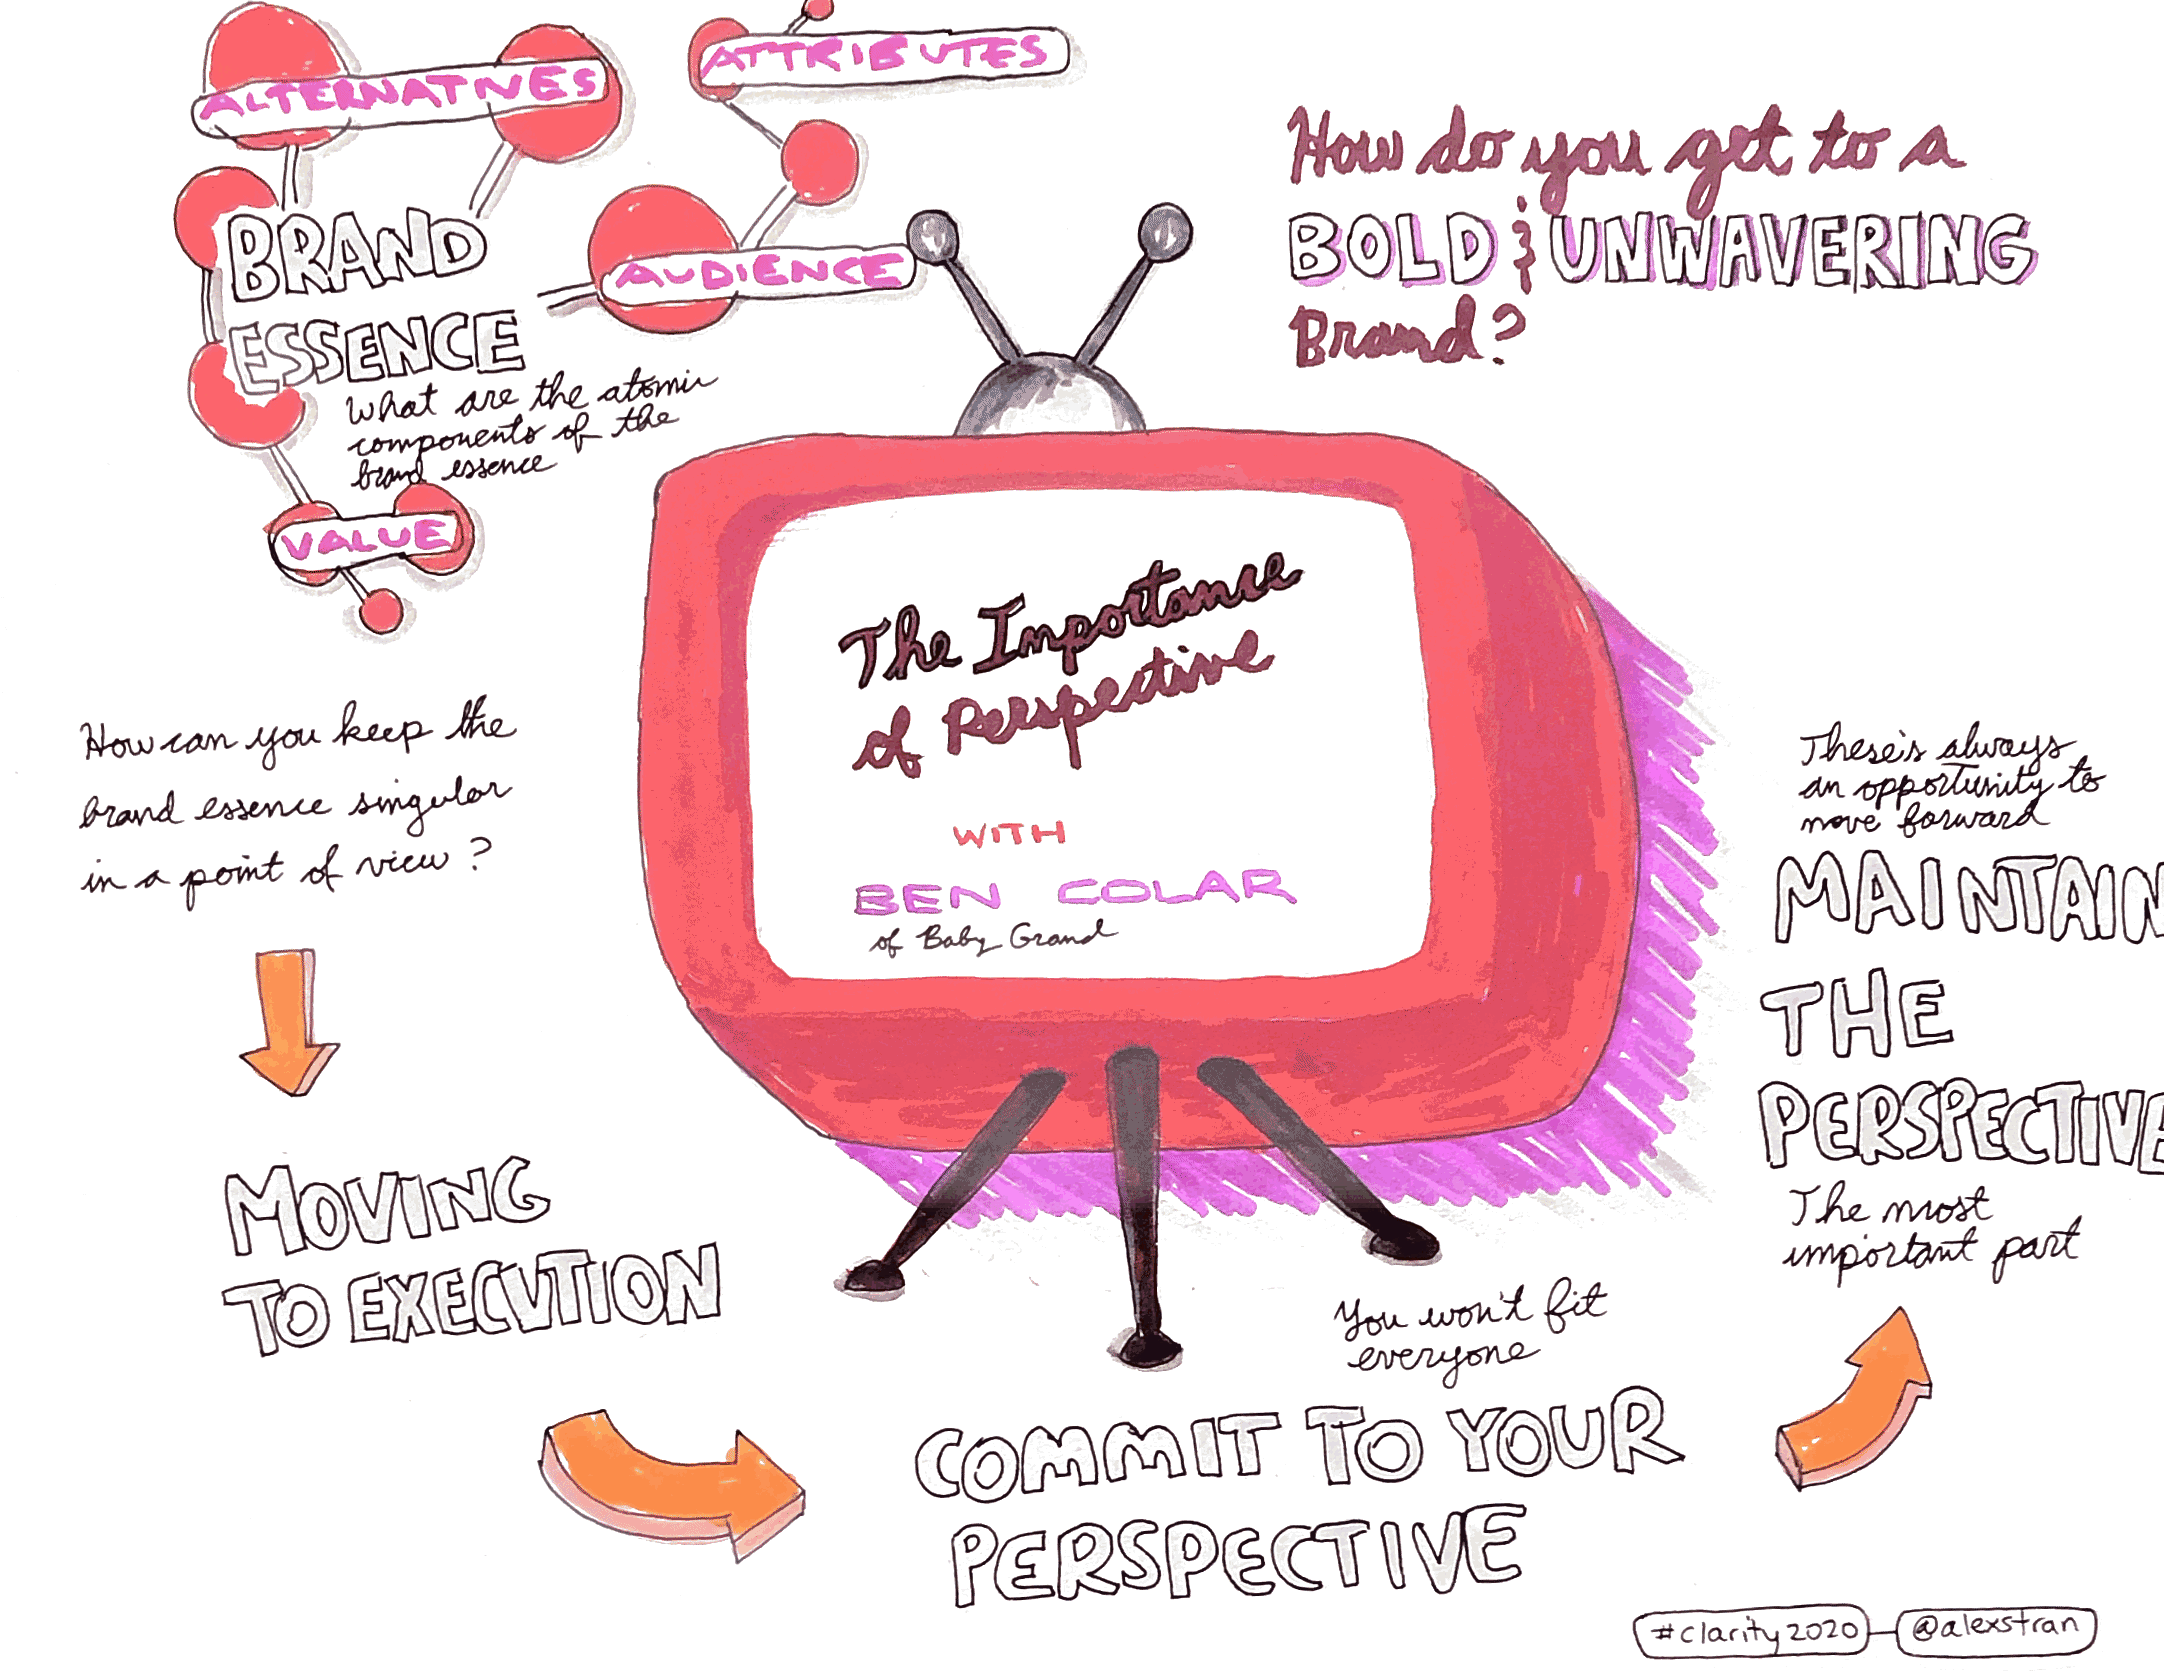 ALTERNATIVES
ATTRIBUTES
AUDIENCE
BRAND
ESSENCE
What are the atomic
components of the
brand essence
VALUE
How do you get to a
BOLD & UNWAVERING
Brand?
The Importance
of Perspective
WITH
BEN COLAR
of Baby Grand
How can you keep the
brand essence singular
in a point of view?
MOVING
TO EXECUTION
You won't fit
everyone
COMMIT TO YOUR
PERSPECTIVE
There's always
an opportunity to
move forward
MAINTAIN
THE
PERSPECTIVE
The most
important part
#clarity2020
@alexstran